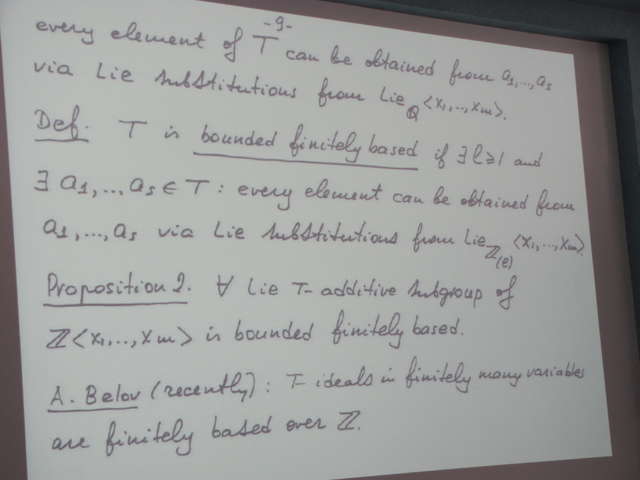 -9-
every element of T can be obtained from a₁,…,aₛ
via Lie substitutions from Lie_ℚ<x₁,…,xₘ>.
Def. T is bounded finitely based if ∃ l⩾1 and
∃ a₁,…,aₛ ∈ T : every element can be obtained from
a₁,…,aₛ via Lie substitutions from Lie_ℤ₍ₑ₎<x₁,…,xₘ>.
Proposition 2. ∀ Lie T-additive subgroup of
ℤ<x₁,…,xₘ> is bounded finitely based.
A. Belov (recently): T-ideals in finitely many variables
are finitely based over ℤ.